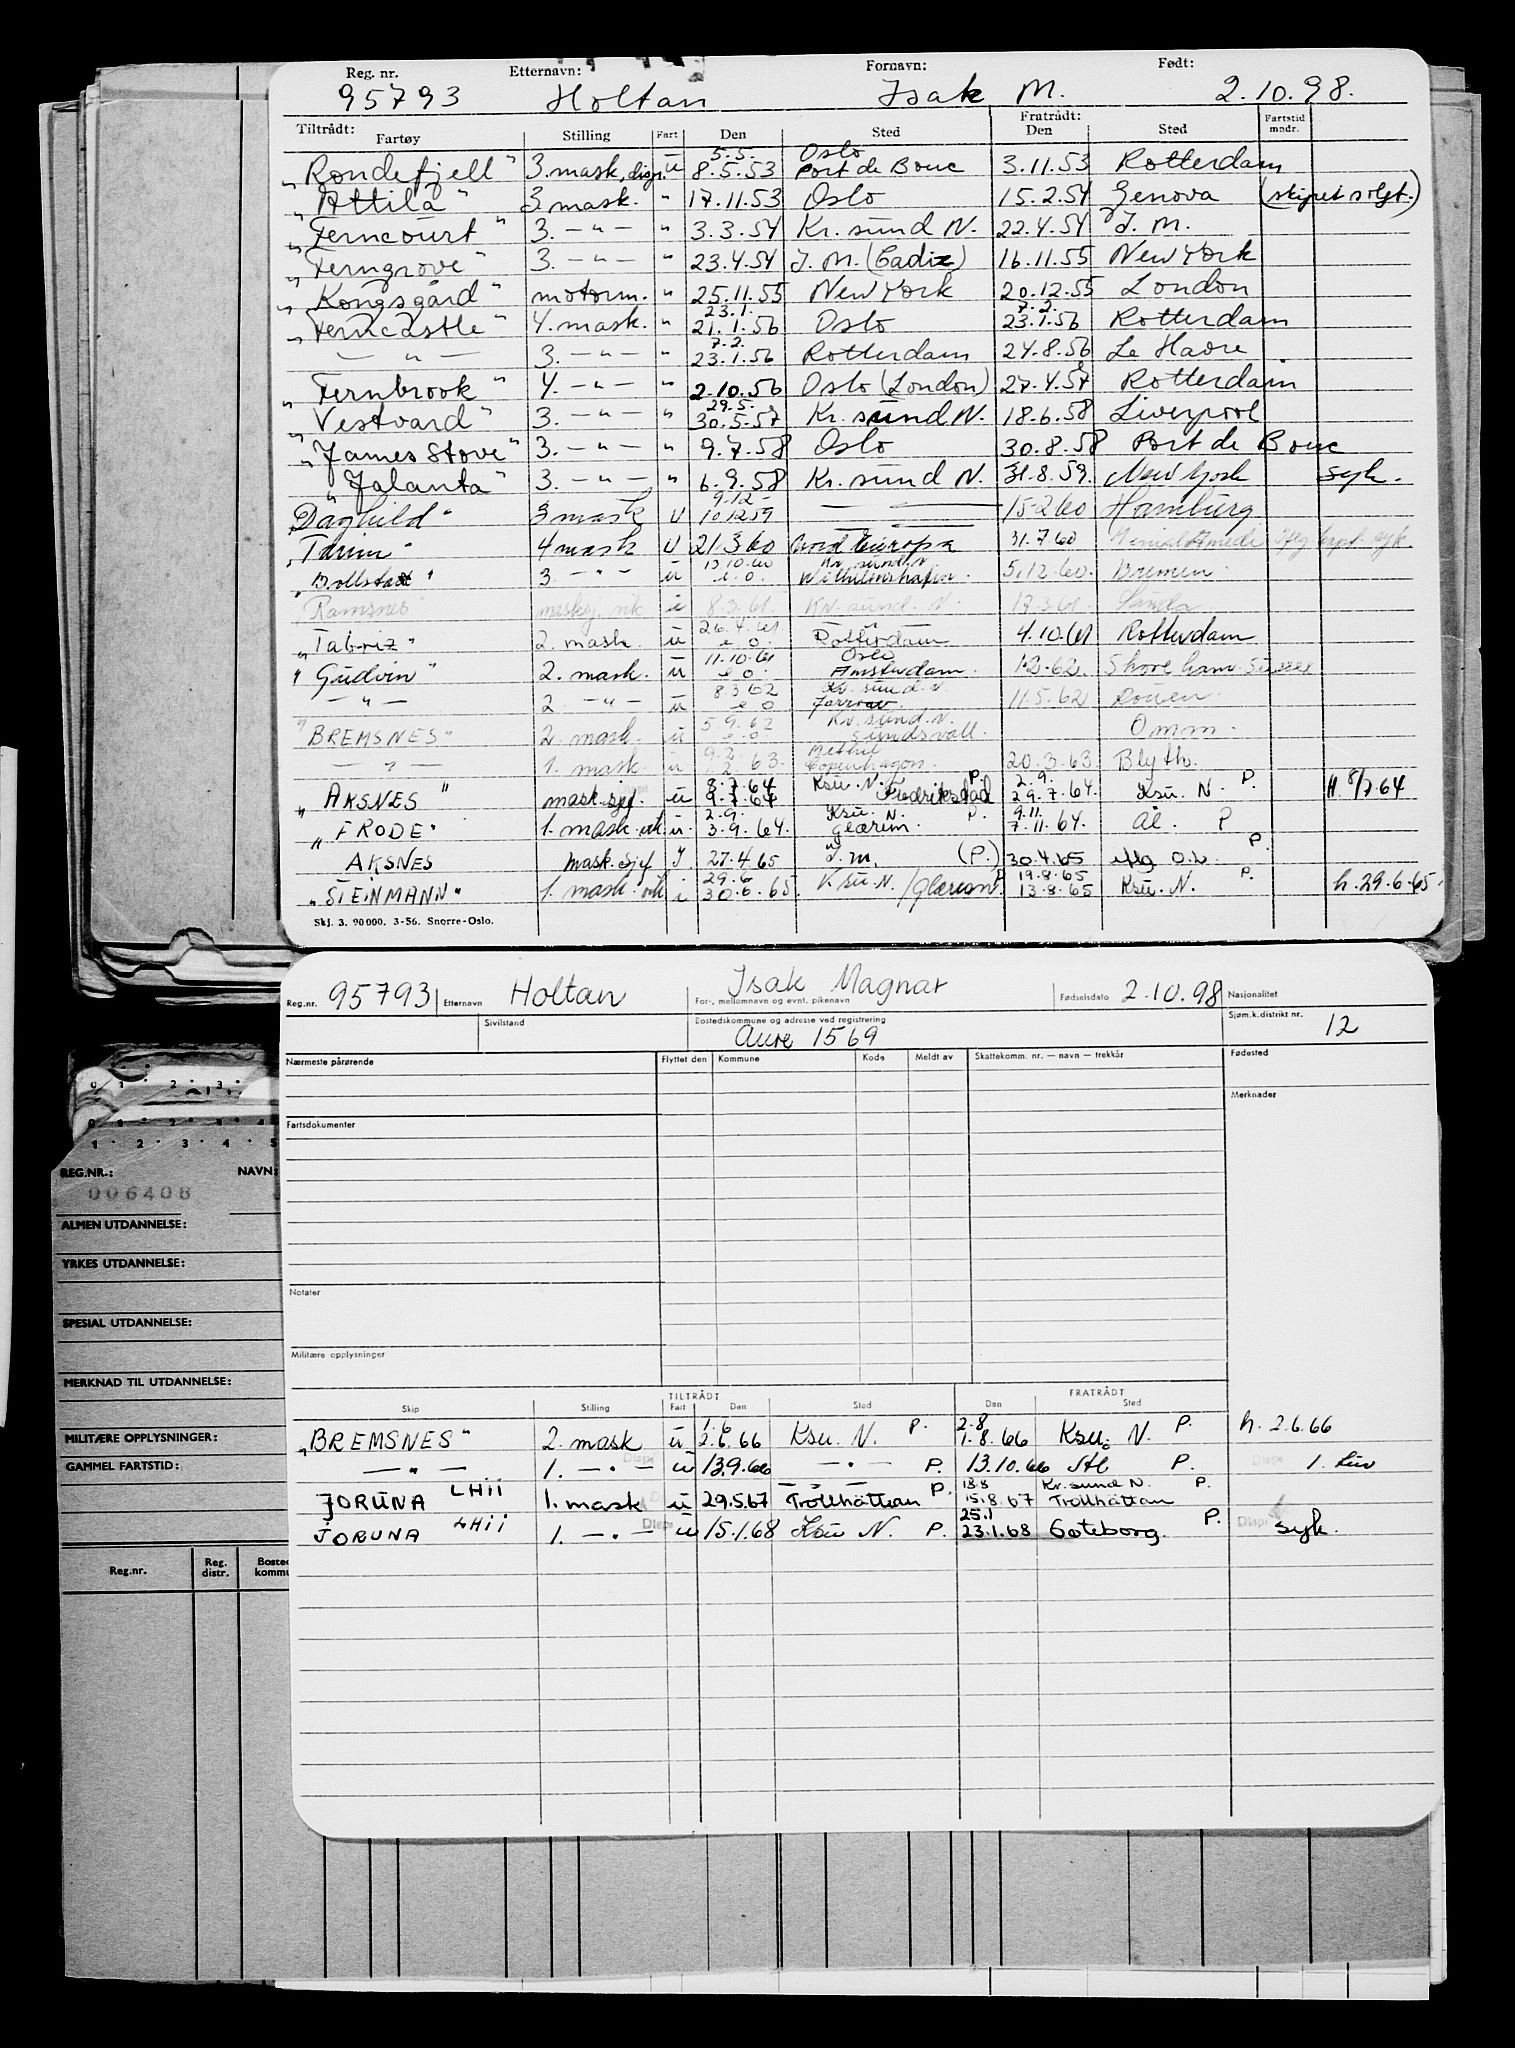 Reg. nr. Etternavn: Fornavn: Født:
95793 Holtan Isak M. 2.10.98.
Tiltrådt: Fratrådt: Fartstid
Fartøy Stilling Fart Den Sted Den Sted mndr.
5.5. Oslo
"Rondefjell" 3. mask, disp. u 8.5.53 Port de Bouc 3.11.53 Rotterdam
"Attila" 3 mask. " 17.11.53 Oslo 15.2.54 Genova (skipet solgt.)
"Ferncourt" 3. — " — " 3.3.54 Kr. sund N. 22.4.54 I. M.
"Ferngrove" 3. — " — " 23.4.54 I. M. (Cadiz) 16.11.55 New York
"Kongsgård" motorm. " 25.11.55 New York 20.12.55 London
23.1. 7.2.
"Ferncastle" 4. mask. " 21.1.56 Oslo 23.1.56 Rotterdam
7.2.
— " — 3. — " — " 23.1.56 Rotterdam 24.8.56 Le Havre
"Fernbrook" 4. — " — " 2.10.56 Oslo (London) 27.4.57 Rotterdam
29.5.
"Vestvard" 3. — " — " 30.5.57 Kr. sund N. 18.6.58 Liverpool
"James Stove" 3. — " — " 9.7.58 Oslo 30.8.58 Port de Bouc
"Jalanta" 3. — " — " 6.9.58 Kr. sund N. 31.8.59. New York syk.
9.12
"Daghild" 3 mask U 10.12.59 — 15-2.60 Hamburg
"Tarim" 4 mask U 21.3.60 Nord Europa 31.7.60 syk.
13.10.60 Kr. sund. N.
3. — " — u e.o. Wilhelmshafen. 5.12.60. Bremen.
"Ramsnes" u 8.3.61. Kr. sund. N. 17.3.61
26.4.61 — " —
"Tabriz" 2. mask. u e.o. Rotterdam 4.10.61 Rotterdam
11.10.61 Oslo
"Gudvin" 2. mask. u e.o. Amsterdam. 1.2.62. Shoreham
8.3.62 Kr. sund. N.
— " — 2. — " — u e.o. Jarrow. 11.5.62 Rouen.
5.9.62 Kr. sund. N.
"BREMSNES" 2. mask. u e.o. Sundsvall. Omm.
9.2. Methil
— " — 1. mask. u 2. 63. Copenhagen. 20.3.63. Blyth.
8.7.64 Ksu. N. P. 2.9.
"AKSNES" mask.sjef. u 9.7.64 Fredrikstad 29.7.64. Ksu. N. P. H. 8/7.64
2.9. Ksu. N. P. 9.11.
"FRODE" 1. mask. u. 3.9.64. Glærem. 7.11.64. Ål. P
AKSNES mask.sjef I 27.4.65 I.m. (P.) 30.4.65 P.
29.6 19.8.65
"STEINMANN" 1. mask. i 30.6.65 Ksu. N./Glærem P 13.8.65 Ksu. N. P. h. 29.6.65.
Skj. 3. 90 000. 3-56. Snorre-Oslo.
Reg.nr. 95793 Etternavn Holtan Isak Magnar
For-, mellomnavn og evnt. pikenavn Fødselsdato 2.10.98 Nasjonalitet
Sivilstand Bostedskommune og adresse ved registrering Sjøm.k.distrikt nr. 12
Aure 1569
Nærmeste pårørende Flyttet den Kommune Kode Meldt av Skattekomm. nr. — navn — trekkår Fødested
Merknader
Fartsdokumenter
Notater
Militære opplysninger
TILTRÅDT FRATRÅDT
Skip Stilling Fart Den Sted Den Sted
1.6 2.8
"BREMSNES" 2. mask u 2.6.66 Ksu. N. P. 1.8.66 Ksu. N. P. h. 2.6.66
— " — 1. — " — u 13.9.66 — " — P. 13.10.66 P.
13.8 Kr. sund N. P.
JORUNA LHII 1. mask u 29.5.67 Trollhättan P. 15.8.67 Trollhättan
25.1
JORUNA LHII 1. — " — u 15.1.68 Ksu N. P. 23.1.68 Goteborg. P. syk.
REG.NR.: NAVN:
006408
ALMEN UTDANNELSE:
YRKES UTDANNELSE:
SPESIAL UTDANNELSE:
MERKNAD TIL UTDANNELSE:
MILITÆRE OPPLYSNINGER:
GAMMEL FARTSTID:
Reg.nr. Reg. distr.